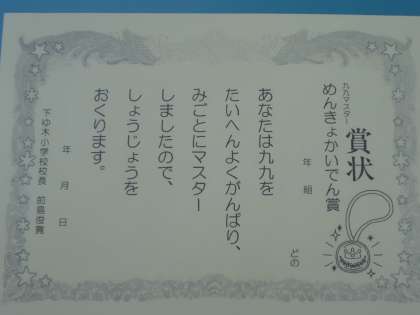 賞状
九九マスター
めんきょかいでん賞
年　組
どの
あなたは九九を
たいへんよくがんばり、
みごとにマスター
しましたので、
しょうじょうを
おくります。
年　月　日
下ゆ木小学校校長　前島俊寛